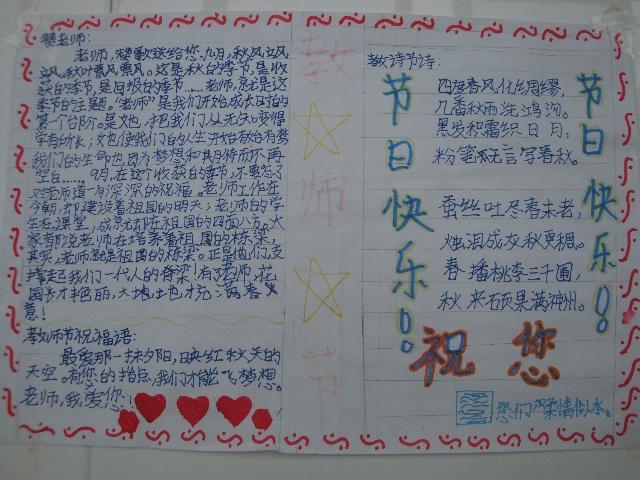 赞老师：
老师，赞歌送给您。九月，秋风飒
飒，秋叶飘飘。这是秋的季节，是收
获的季节，是回报的季节……老师，就是这
季节的主题。"老师"是我们开始成长时的
第一个台阶。是
我们的生命也因为梦想和期待而不再
空白……。9月，在这个收获的季节，不要忘了
对老师道一声深深的祝福。老师工作在
今朝，却建设着祖国的明天；老师的学
生在课堂，成就却在祖国的四面八方。大
家都说老师在培养着祖国的栋梁，
其实，老师就是祖国的栋梁。正是他们支
撑起我们一代人的脊梁！有了老师，花
园才艳丽，大地才充满春
意！
教师节祝福语：
最美那一抹夕阳，映红秋天的
天空。有您的指点，我们才能飞梦想。
老师，我爱您！
教
师
节
教诗节诗：
四度春风化绸缪，
几番秋雨洗鸿沟。
黑发积霜织日月，
粉笔无言写春秋。
蚕丝吐尽春未老，
烛泪成灰秋更稠。
春播桃李三千圃，
秋来硕果满神州。
节日快乐！
节日快乐！
祝您
您们柔情似水。